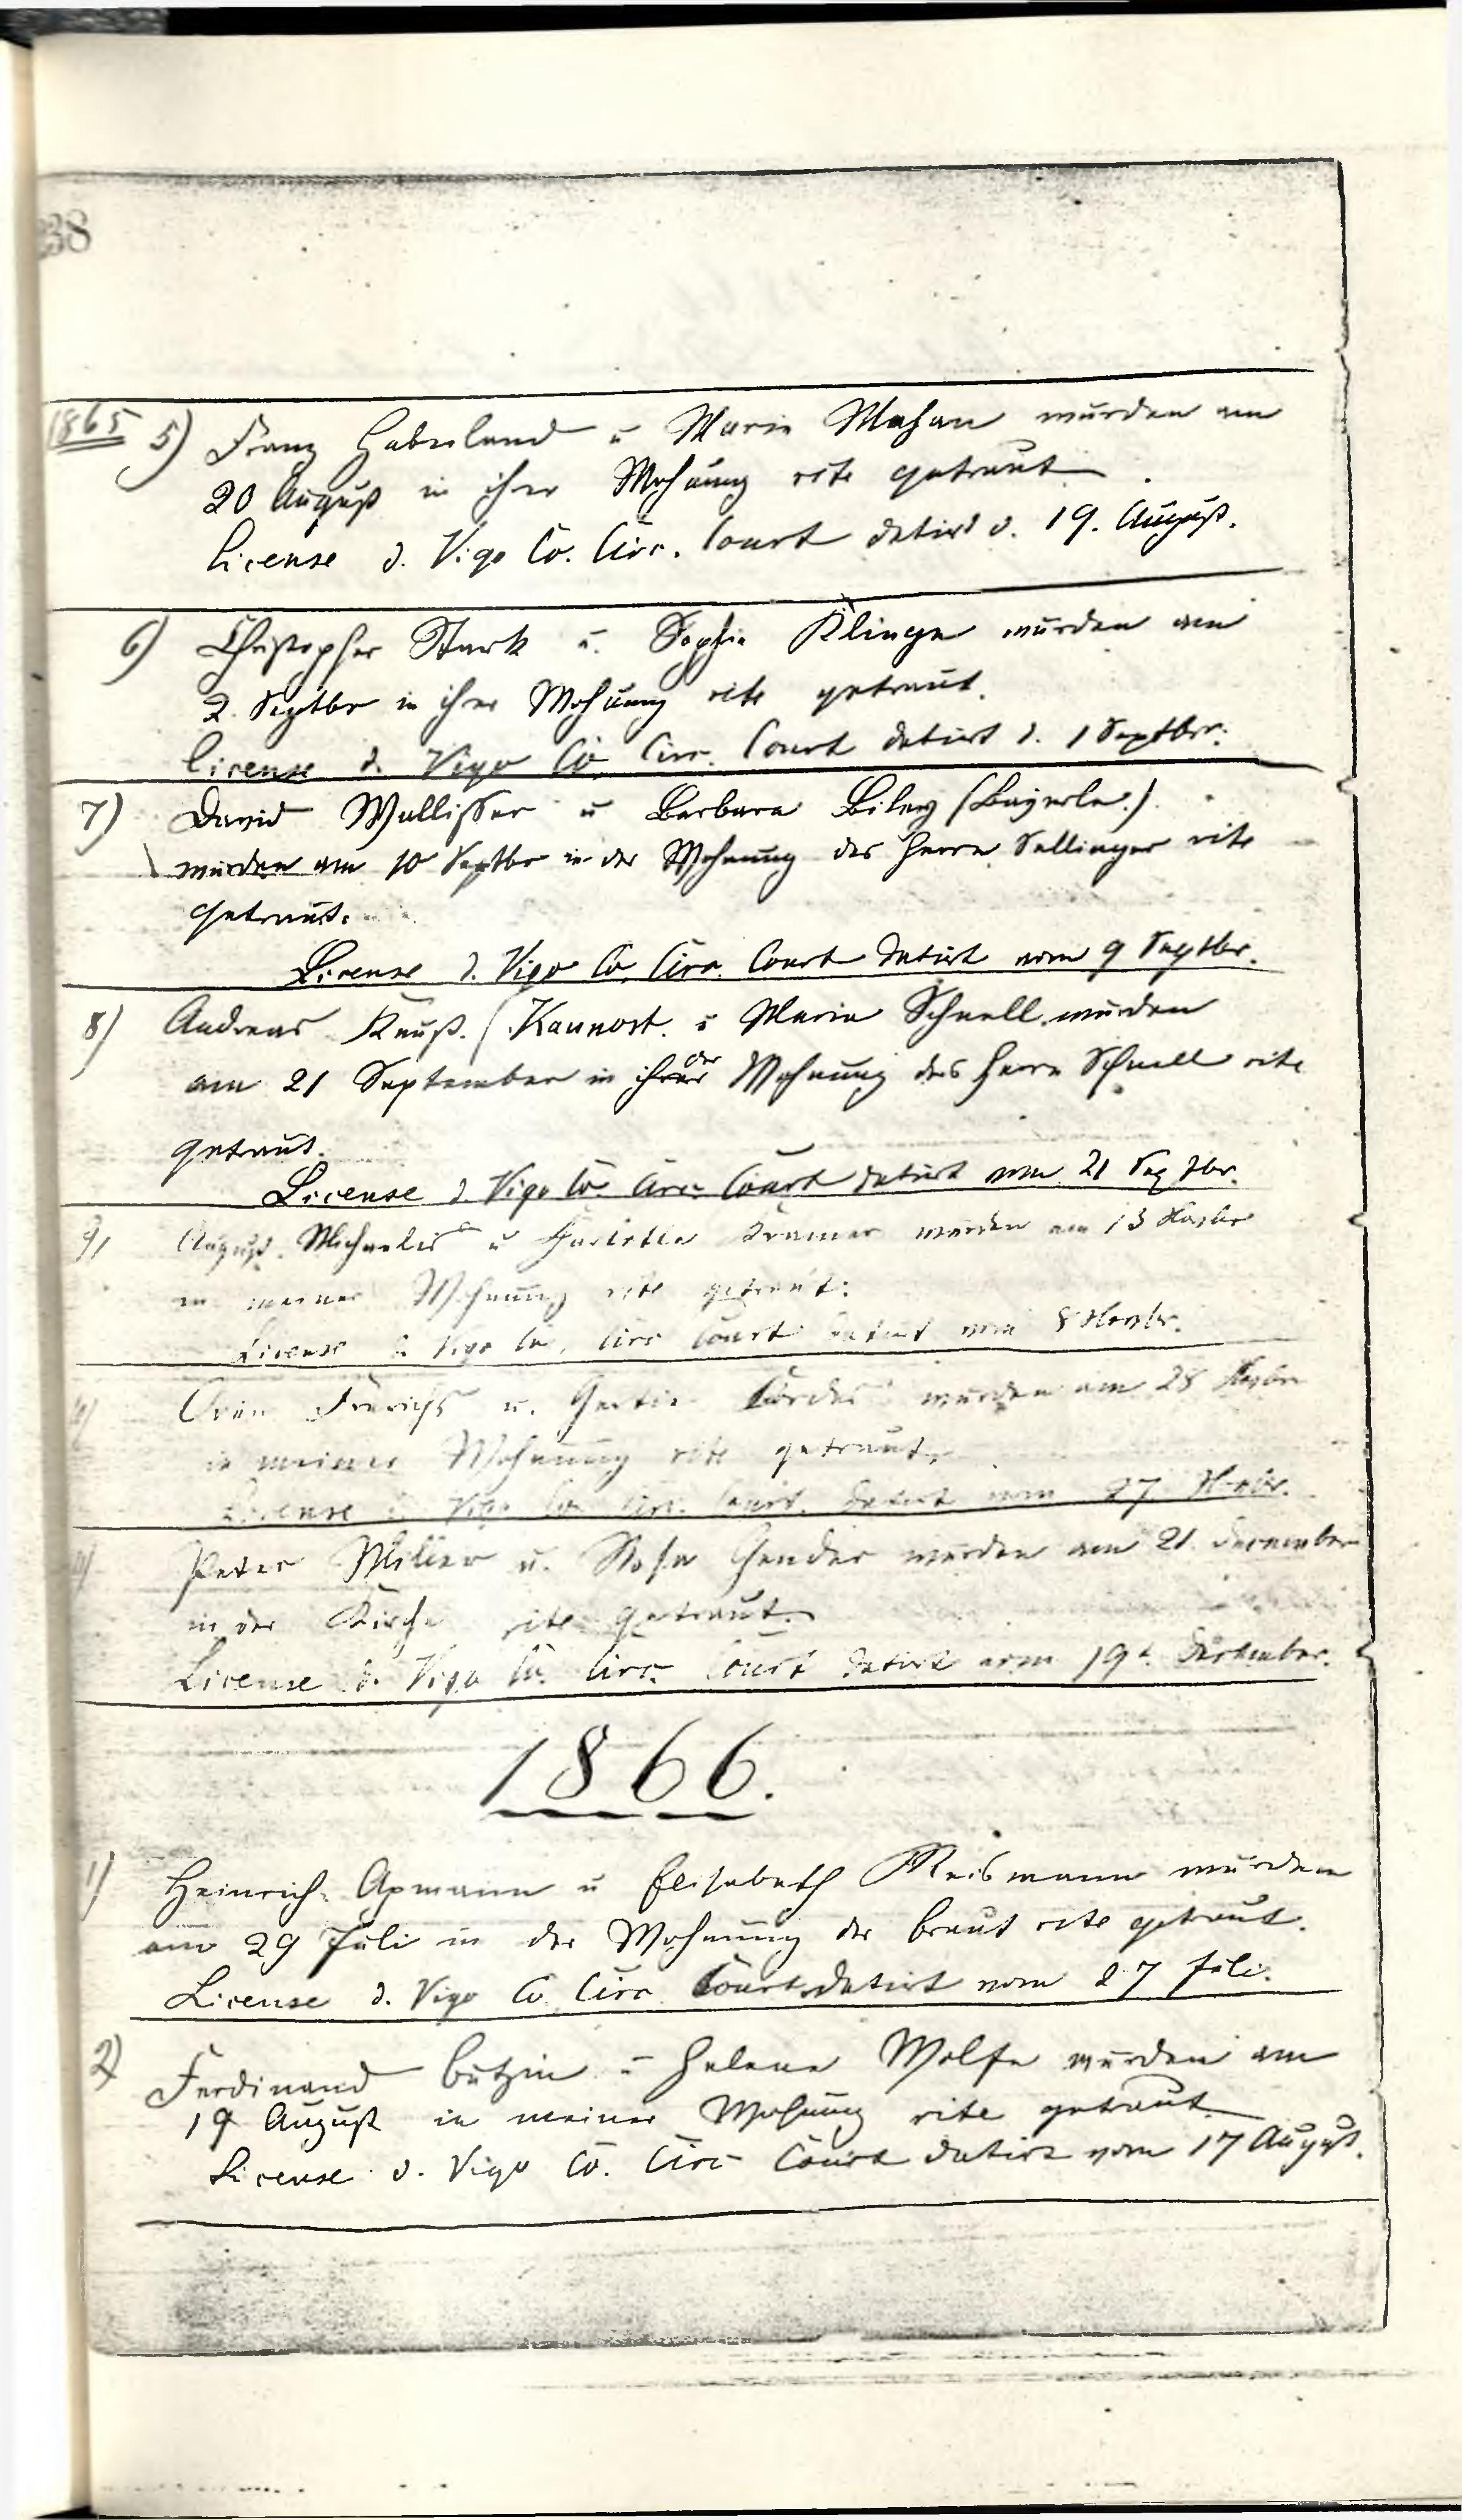 38
1865 5) Franz Haberland u Marie Mahan wurden am
20 August in ihrer Wohnung rite getraut.
License d. Vigo Co. Circ. Court datirt d. 19. August.
6) Christopher Stark u. Sophie Klinge wurden am
2. Septbr in ihrer Wohnung rite getraut.
License d. Vigo Co. Circ. Court datirt d. 1 Septbr.
7) David Wallisser u Barbara Biley (Bayerle.)
wurden am 10 Septbr in der Wohnung des Herrn Sellinger rite
getraut.
License d. Vigo Co. Circ. Court datirt vom 9 Septbr.
8) Andreas Knust. (Kaunost. u Maria Schnell wurden
am 21 September in ihrer der Wohnung des Herrn Schnell rite
getraut.
License d. Vigo Co. Circ. Court datirt vom 21 Septbr.
9) August Michaelis u Kramer wurden am 13 Novbr
in meiner Wohnung rite getraut.
License d. Vigo Co. Circ Court datirt vom 8 Novbr.
u. Cordes wurden am 28 Novbr
in meiner Wohnung rite getraut.
License d. Vigo Co. Circ. Court. datirt vom 27 Novbr.
Peter Miller u. Rosa Gender wurden am 21. December
in der Kirche rite getraut.
License d. Vigo Co. Circ. Court datirt vom 19t December.
1866.
1) Heinrich Apmann u Elisabeth Reismann wurden
am 29 Juli in der Wohnung der Braut rite getraut.
License d. Vigo Co. Circ Court datirt vom 27 Juli.
2) Ferdinand Butzin u Helene Wolfe wurden am
19 August in meiner Wohnung rite getraut
License d. Vigo Co. Circ Court datirt vom 17 August.